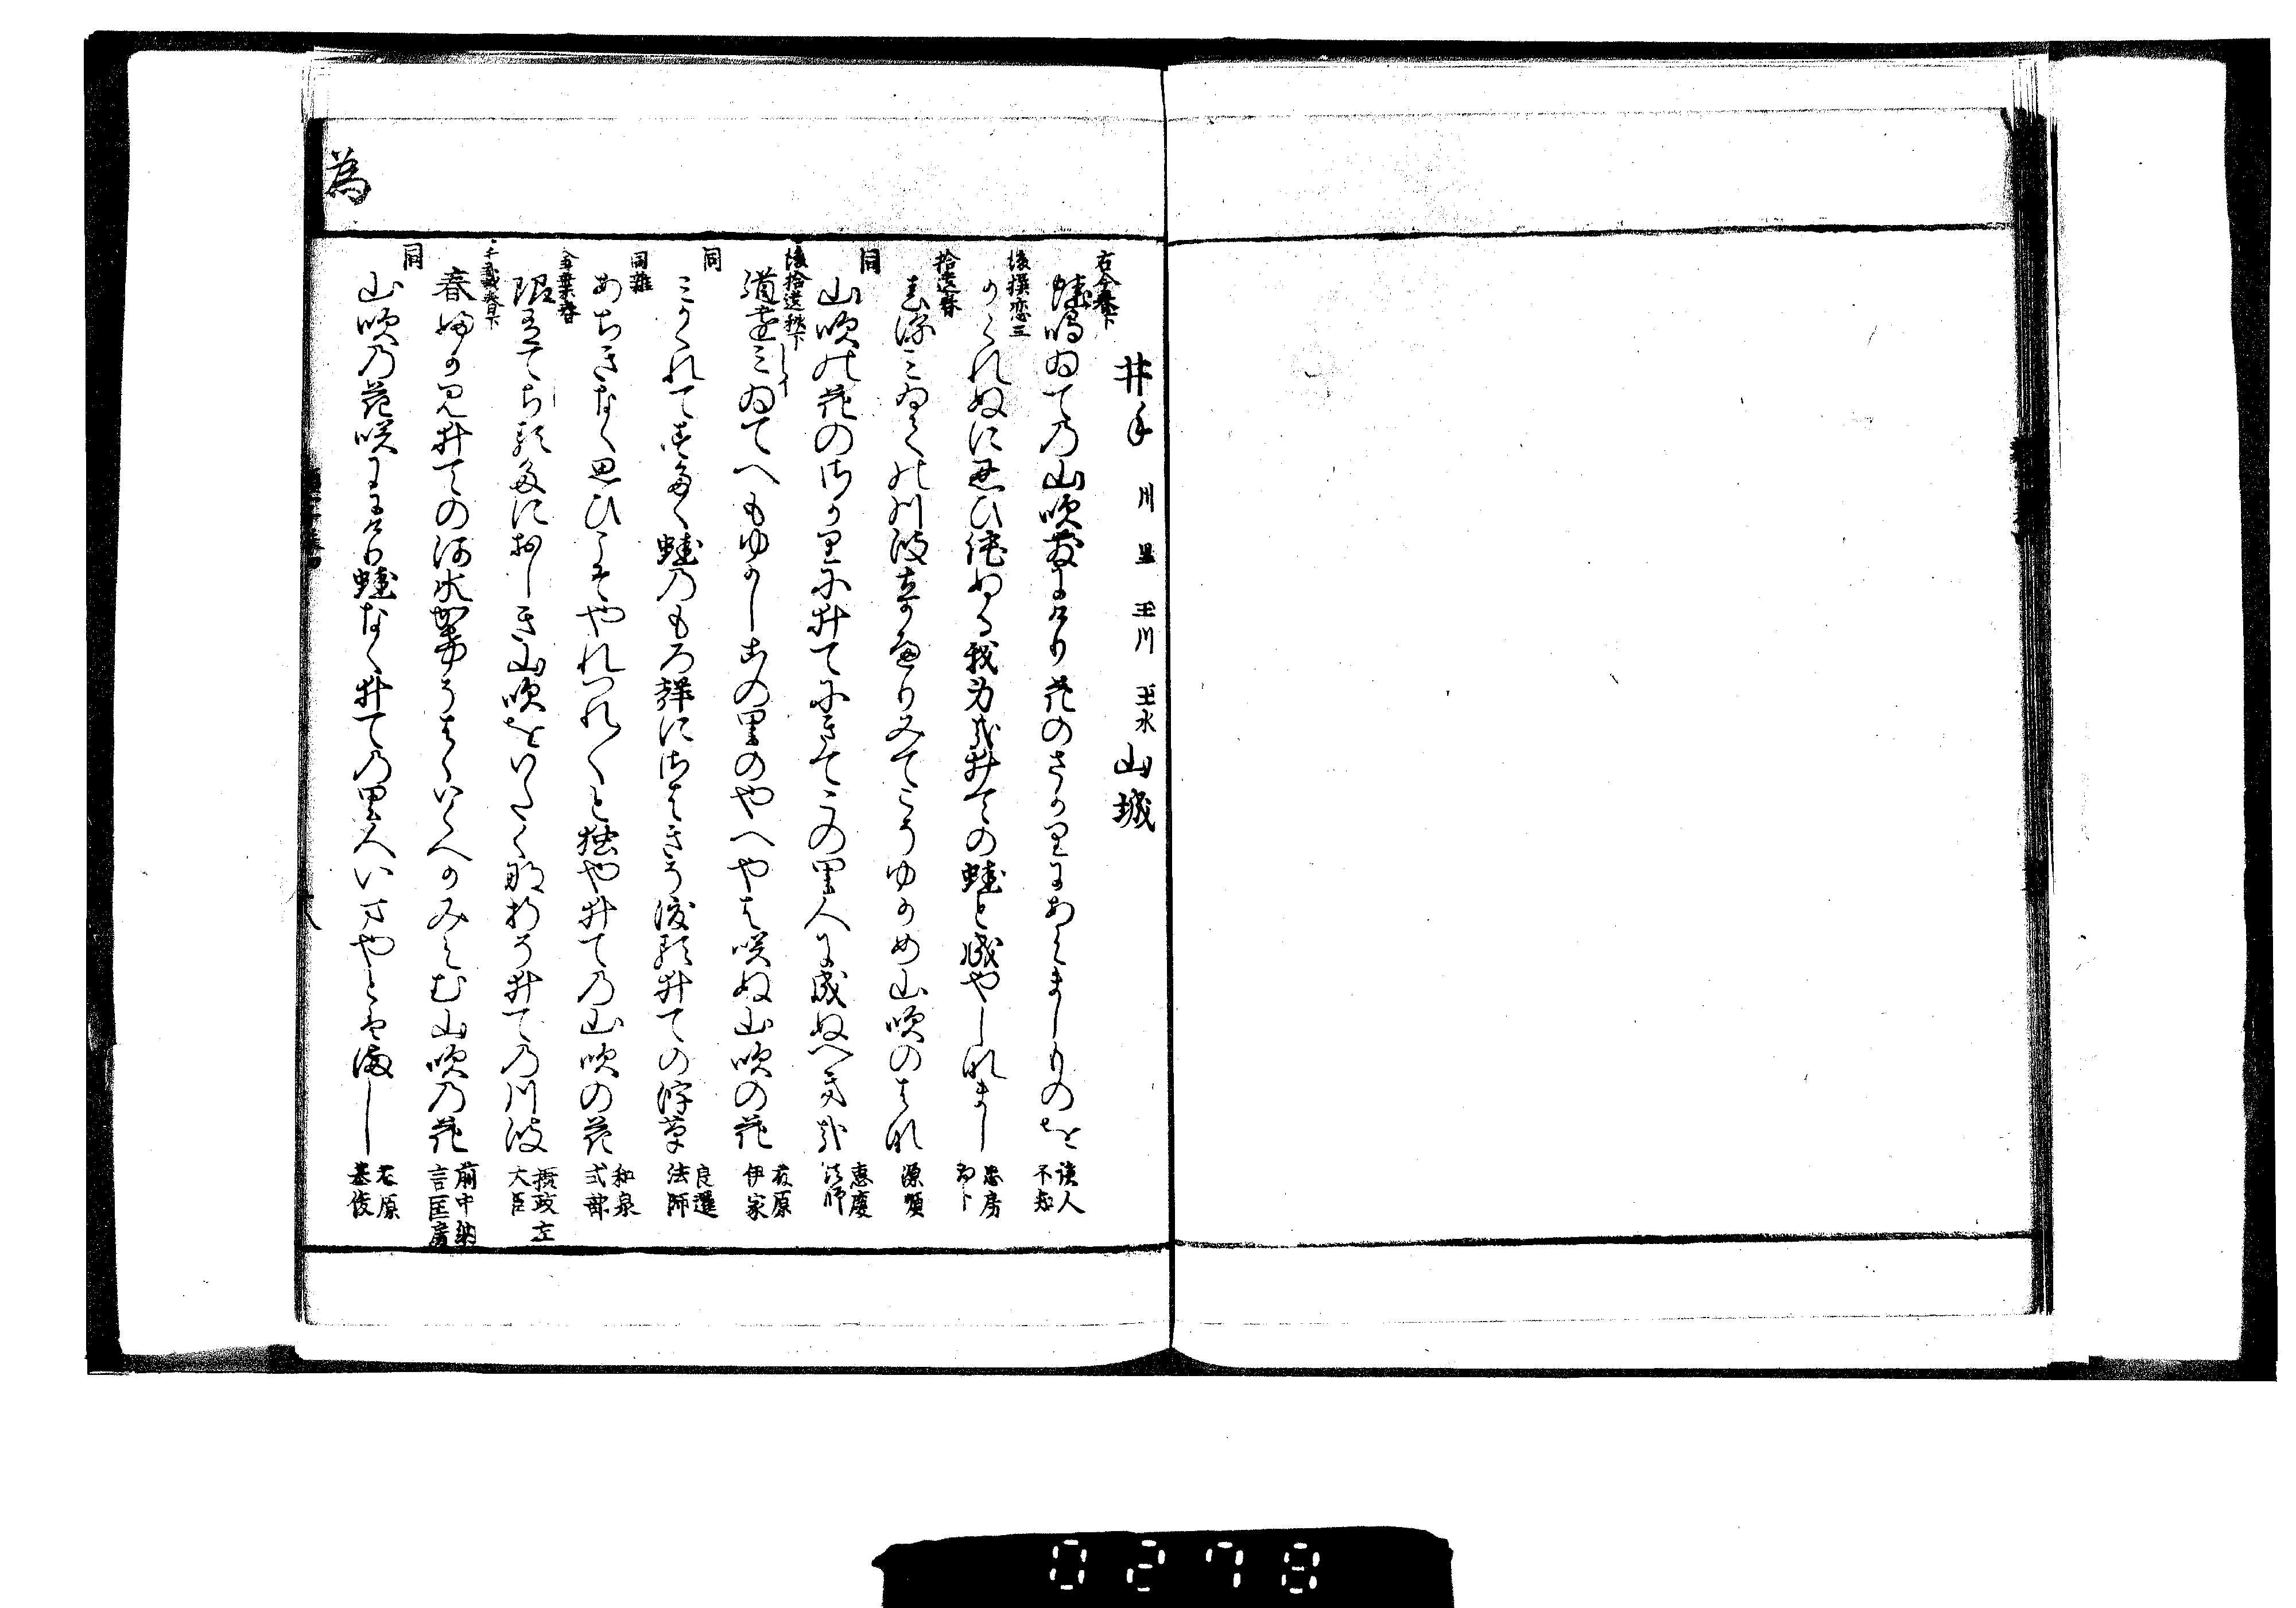 井手 川 里 玉川 玉水 山城
古今春下
蛙鳴ゐての山吹散にけり花のさかりにあはましものを 読人不知
後撰恋三
かくれぬに忍ひ侘ぬる我身哉井ての蛙と成やしなまし 忠房
拾遺春
春深みゐての川波立かへりみてこそゆかめ山吹のはな 源順
同
山吹の花のさかりに井てにきてこの里人に成ぬへき哉 恵慶法師
後拾遺秋下
道遠みゐてへもゆかしこの里のやへやは咲ぬ山吹の花 藤原伊家
同
みかくれてすたく蛙のもろ声にさはきそ渡る井ての浮草 良暹法師
同雑
あちきなく思ひこそやれつれ〱と独や井ての山吹の花 和泉式部
金葉春
限有てちるたにおしき山吹をいたくなおりそ井ての川波 摂政左大臣
千載春下
春ふかみ井ての河水かけそはゝいくへかみえむ山吹の花 前中納言匡房
同
山吹の花咲にけり蛙なく井ての里人いまやとはまし 藤原基俊
為
0278